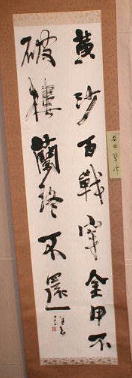 黄沙百戰穿金甲不
破樓蘭終不還